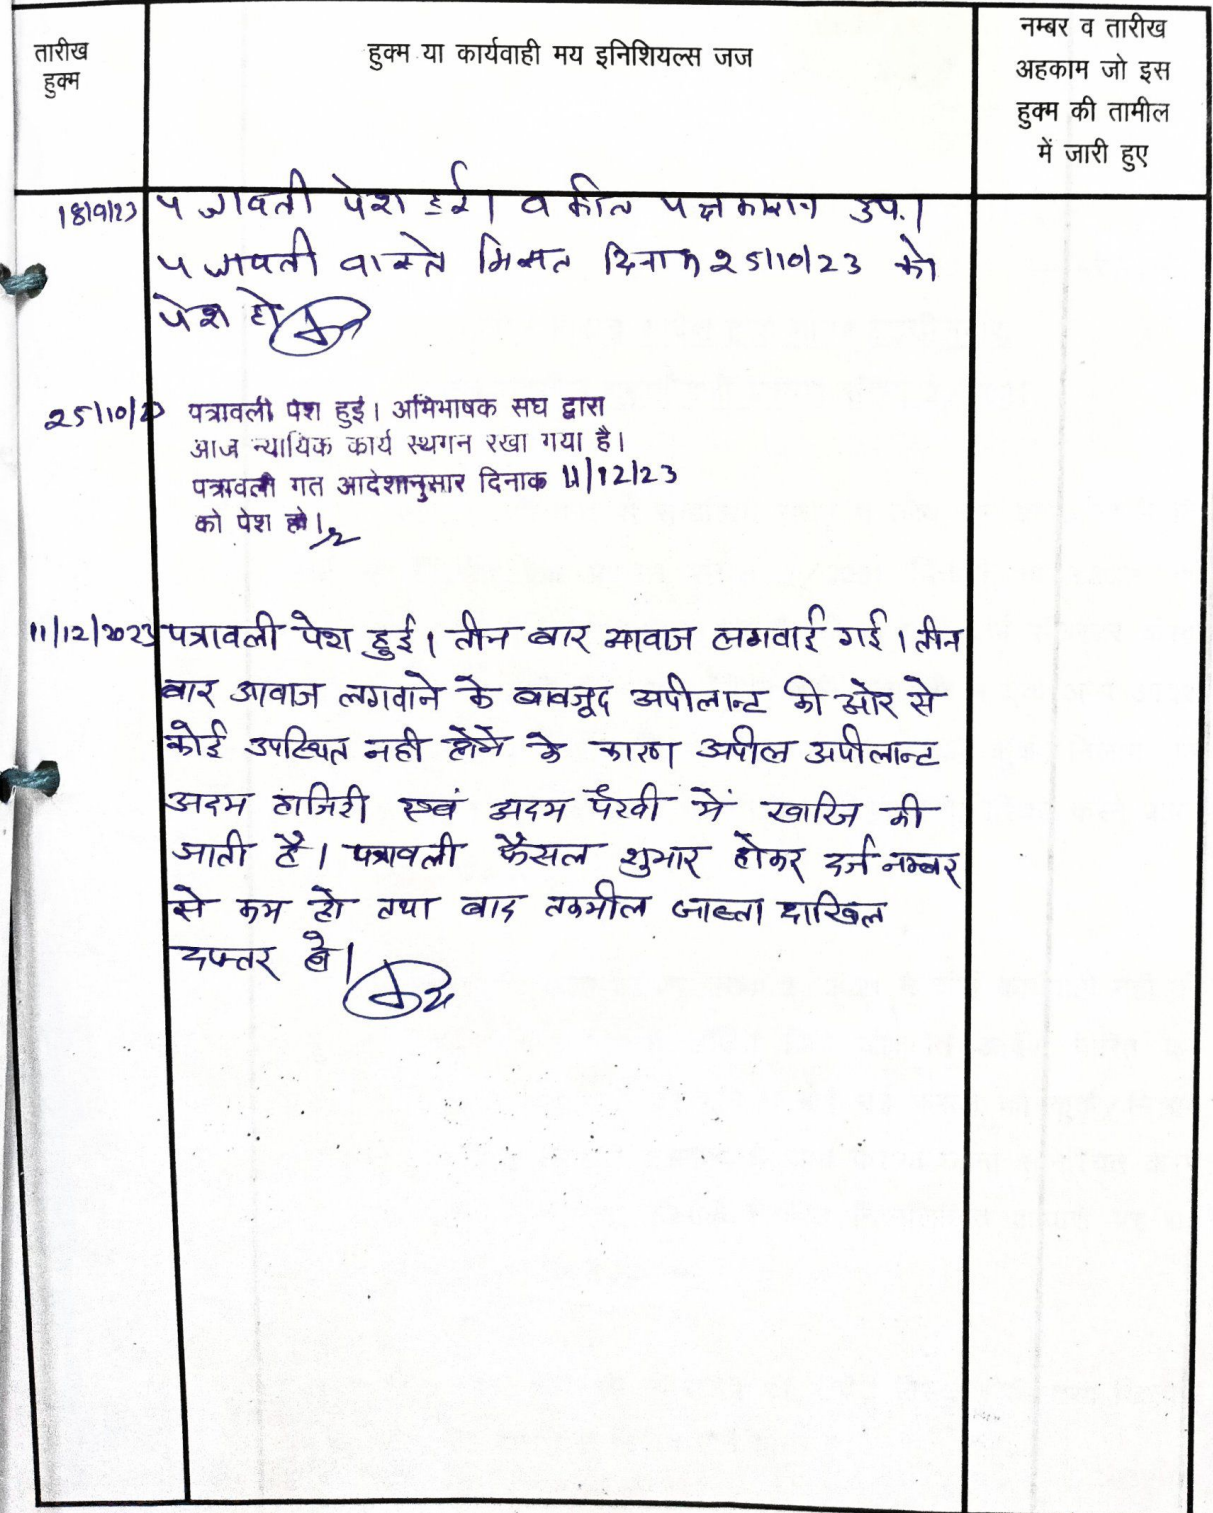 तारीख
हुक्म
हुक्म या कार्यवाही मय इनिशियल्स जज
नम्बर व तारीख
अहकाम जो इस
हुक्म की तामील
में जारी हुए
18/9/23 पत्रावली पेश हुई। वकील पक्षकारान उप.।
पत्रावली वास्ते मिसल दिनांक 25/10/23 को
पेश हो
25/10/23 पत्रावली पेश हुई। अभिभाषक संघ द्वारा
आज न्यायिक कार्य स्थगन रखा गया है।
पत्रावली गत आदेशानुसार दिनाक 11/12/23
को पेश हो।
11/12/2023 पत्रावली पेश हुई। तीन बार आवाज लगवाई गई। तीन
बार आवाज लगवाने के बावजूद अपीलान्ट की ओर से
कोई उपस्थित नही होने के कारण अपील अपीलान्ट
अदम हाजिरी एवं अदम पैरवी में खारिज की
जाती है। पत्रावली फैसल शुमार होकर दर्ज नम्बर
से कम हो तथा बाद तकमील जाब्ता दाखिल
दफ्तर हो।